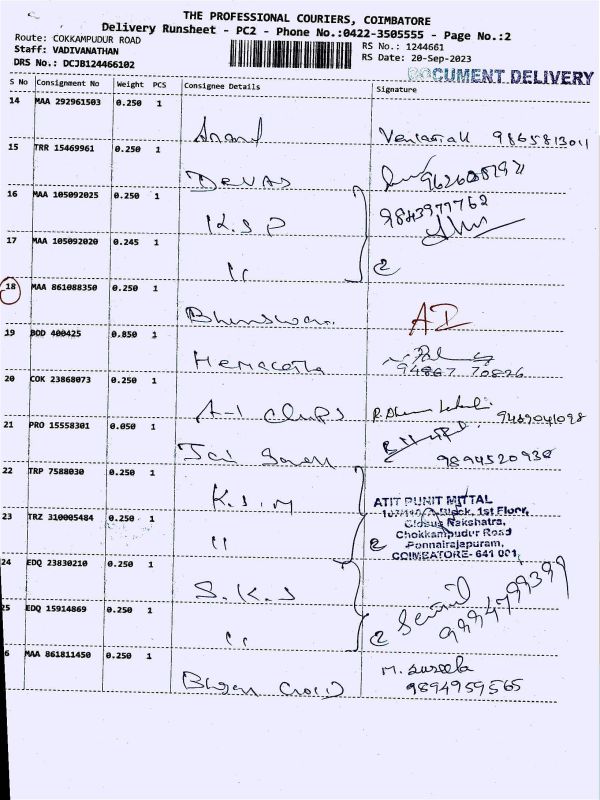 THE PROFESSIONAL COURIERS, COIMBATORE
Delivery Runsheet - PC2 - Phone No.:0422-3505555 - Page No.:2
Route: COKKAMPUDUR ROAD
RS No.: 1244661
Staff: VADIVANATHAN
RS Date: 20-Sep-2023
DRS No.: DCJB124466102
DOCUMENT DELIVERY
S No Consignment No Weight PCS Consignee Details Signature
14 MAA 292961503 0.250 1
Anand 9865813011
15 TRR 15469961 0.250 1
DEVAS
16 MAA 105092025 0.250 1
K.S.P 9843977762
17 MAA 105092020 0.245 1
" 2
18 MAA 861088350 0.250 1
AI
19 BOD 400425 0.850 1
94867 70826
20 COK 23868073 0.250 1
A-1 Chips 9489041098
21 PRO 15558301 0.050 1
Jai 9894520938
22 TRP 7588030 0.250 1
K.S.M
ATIT PUNIT MITTAL
Block, 1st Floor,
23 TRZ 310005484 0.250 1
Nakshatra,
Chokkampudur Road
" 2 Ponnairajapuram,
COIMBATORE- 641 001
24 EDQ 23830210 0.250 1
S.K.S
25 EDQ 15914869 0.250 1
" 2
6 MAA 861811450 0.250 1
M. Suseela
9894959565